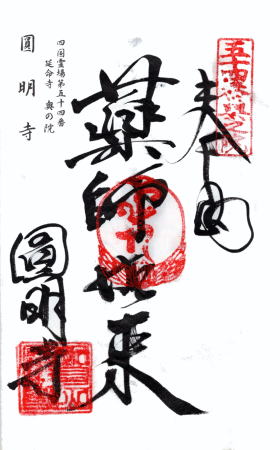 五十四番奥之院
奉納
薬師如来
圓明寺
四国霊場第五十四番
延命寺 奥の院
圓明寺